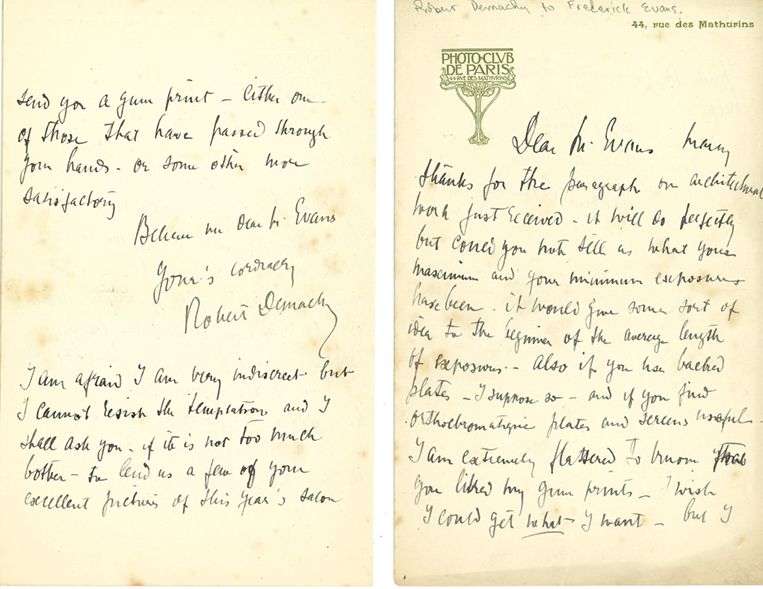 Robert Demachy to Frederick Evans.
44, rue des Mathurins
PHOTO-CLVB
DE PARIS
44 RVE DES MATHVRINS
Dear Mr. Evans many
thanks for the paragraph on architectural
work just received - it will do perfectly
but could you not tell us what your
maximum and your minimum exposures
have been - it would give some sort of
idea to the beginner of the average length
of exposures - also if you use backed
plates - I suppose so - and if you find
orthochromatique plates and screens useful -
I am extremely flattered to know that
you liked my gum prints - I wish
I could get what I want - but I
send you a gum print - Either one
of those that have passed through
your hands - or some other more
satisfactory
Believe me dear Mr. Evans
Your's cordially
Robert Demachy
I am afraid I am very indiscreet but
I cannot resist the temptation and I
shall ask you - if it is not too much
bother - to lend us a few of your
excellent pictures of this year's salon